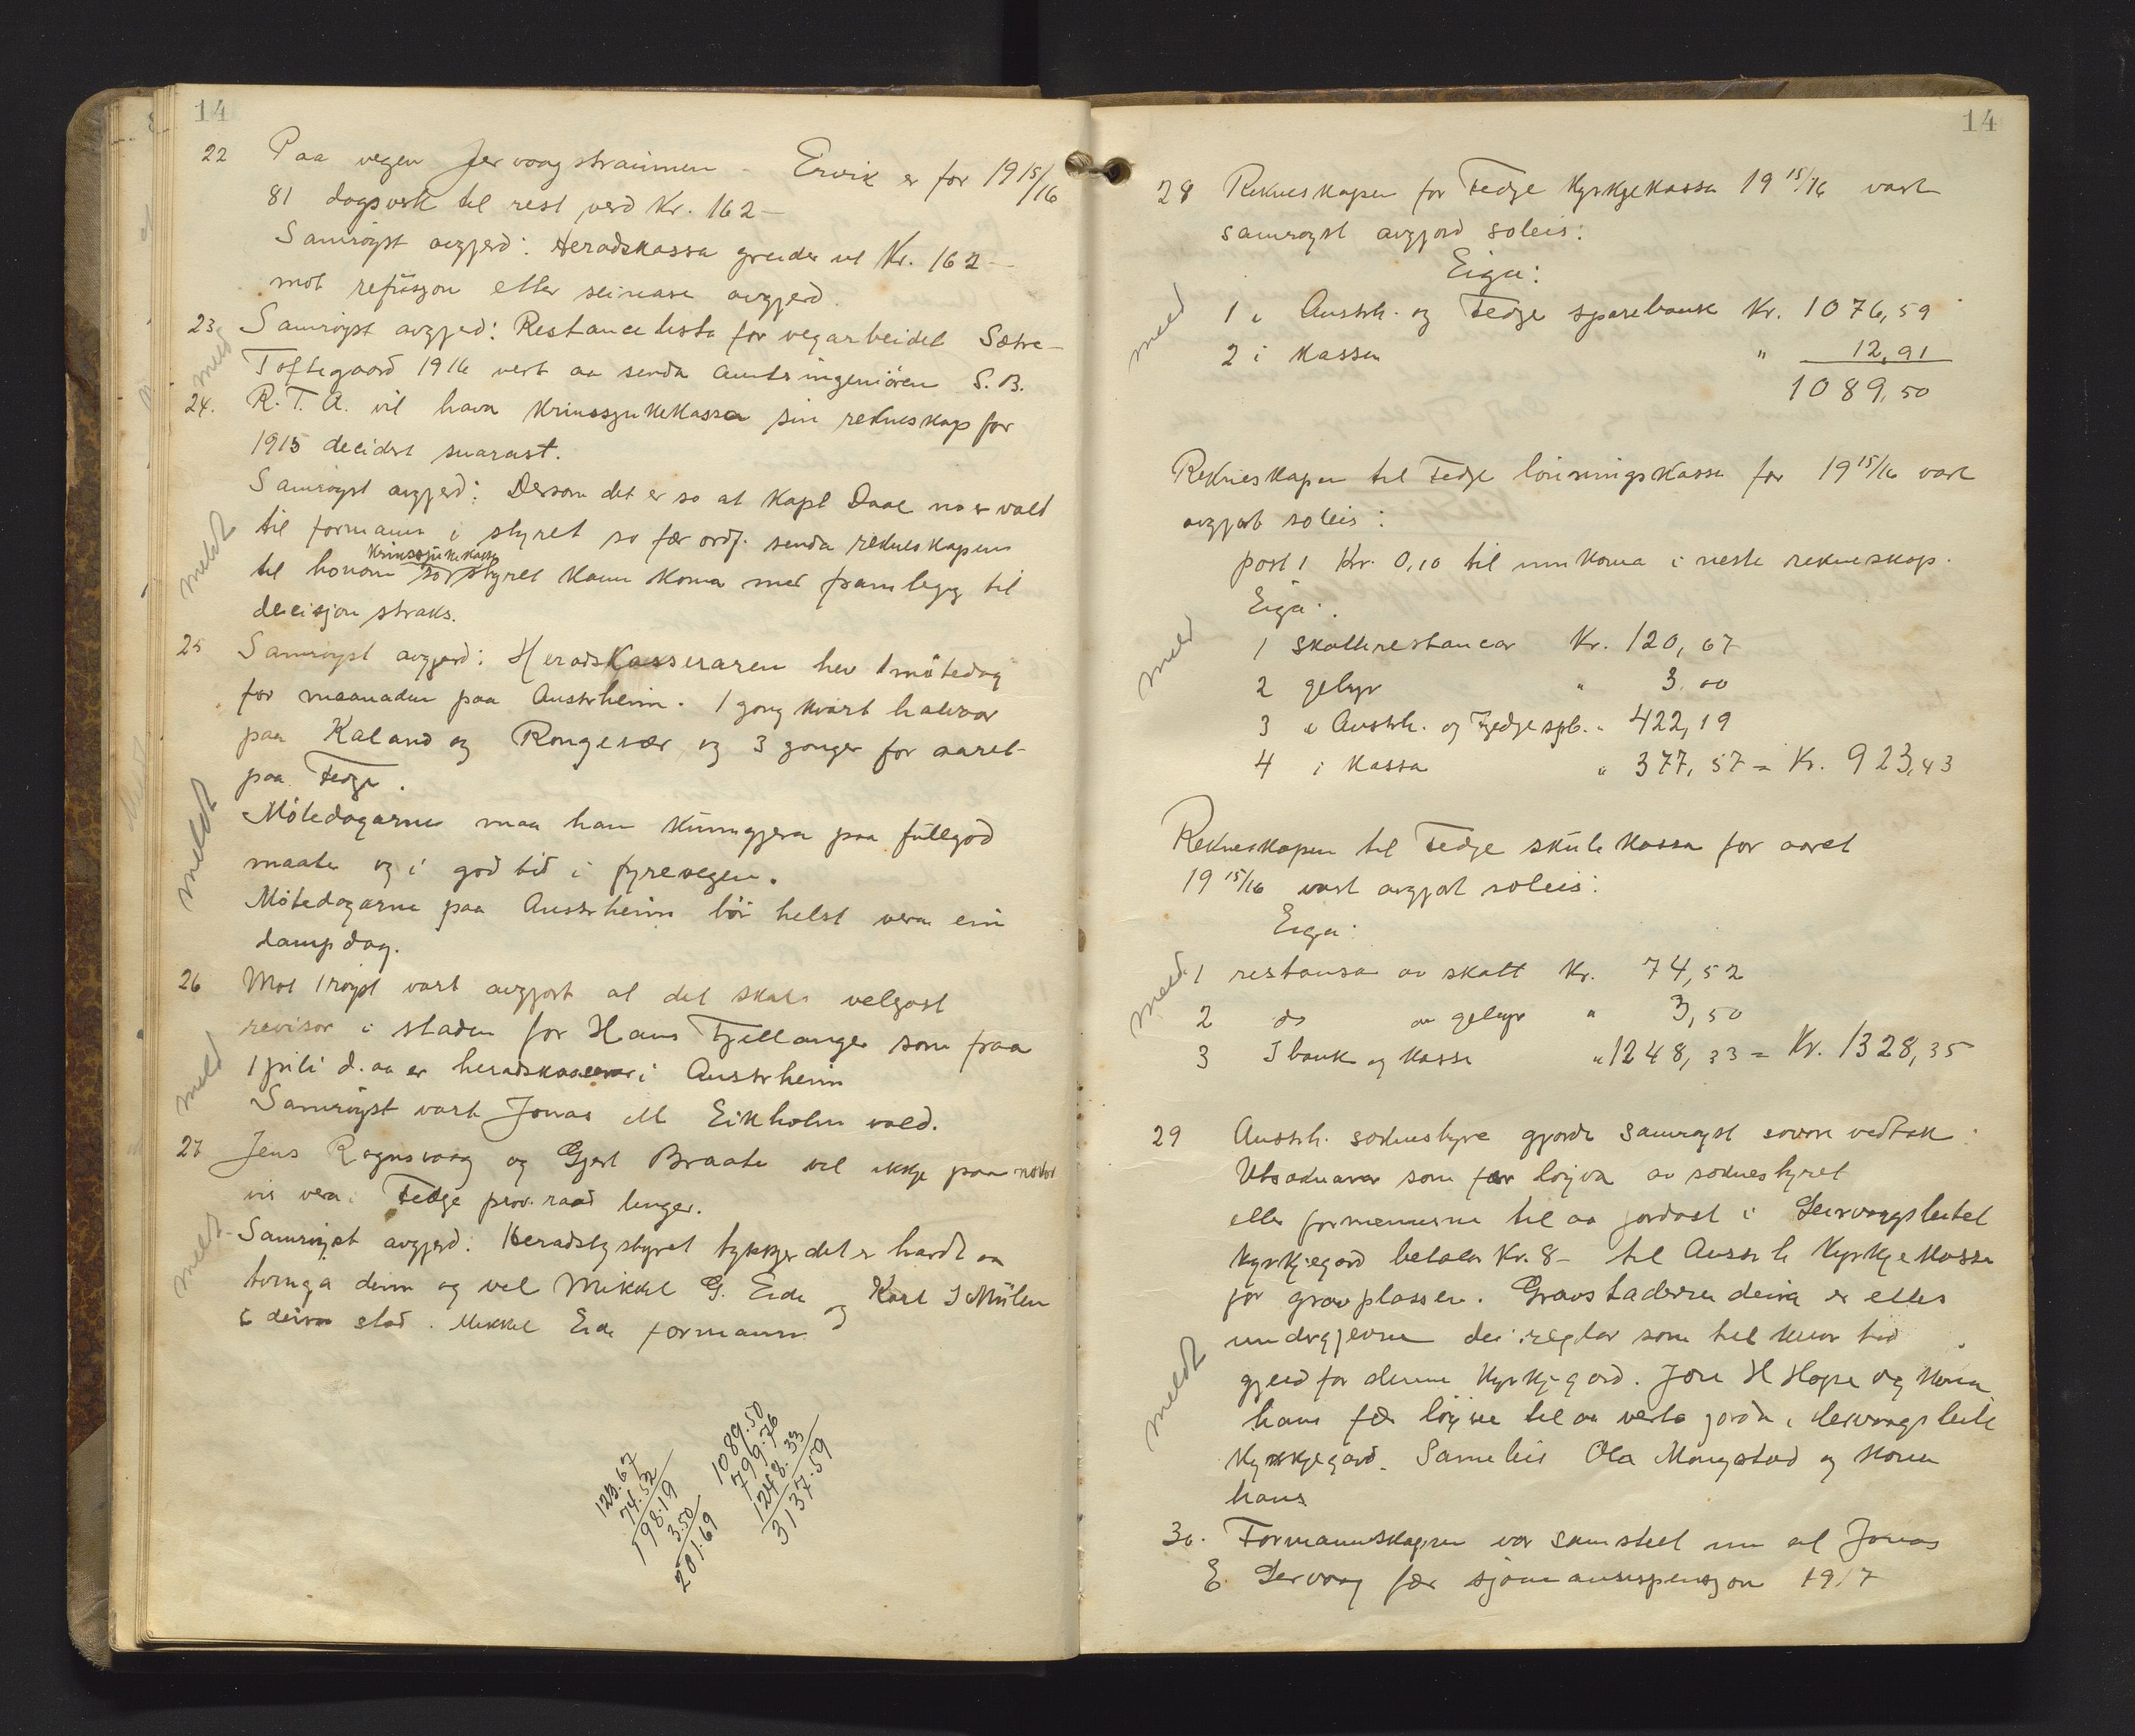 14
22 Paa vegen Jervaagstraumen - Ervik er for 19 15/16
81 dagsverk til rest verd Kr. 162 -
Samrøyst avgjerd: Heradskassa greider ut Kr. 162 -
mot refusjon etter seinare avgjerd.
23 Samrøyst avgjerd: Restancelista for vegarbeidet Sætre-
Toftegaard 1916 vert aa senda amtsingeniøren S. B.
meld
24. R. T. A. vil hava Krinssjukekassa sin rekneskap for
1915 decidert snarast.
Samrøyst avgjerd: Dersom det er so at Kapt Daae no er vald
til formann i styret so fær ordf. senda rekneskapen
krinssjukekasse
til honom so styret kann koma med framlegg til
decisjon straks.
meldt
25 Samrøyst avgjerd: Heradskasseraren hev 1 møtedag
for maanaden paa Austrheim. 1 gong kvart halvaar
paa Kaland og Rongevær og 3 gonger for aaret
paa Fedje.
Møtedagarne maa han kunngjera paa fullgod
maate og i god tid i fyrevegen.
Møtedagarne paa Austrheim bør helst vera ein
dampdag.
meldt
26 Mot 1 røyst vart avgjort at det skal veljast
revisor i staden for Hans Fjellanger som fraa
1 juli d. aa er heradskasserar i Austrheim
Samrøyst vart Jonas M Eikholm vald.
meld
27 Jens Rognsvaag og Gjert Braate vil ikkje paa nokor
vis vera i Fedje prov. raad lenger.
Samrøyst avgjerd. Heradstyret tykkjer det er hardt aa
tvinga deim og vel Mikkel G. Eide og Karl J Mulen
i deira stad. Mikkel Eide formann
meldt
123.67
74.52
198.19
3.50
201.69
1089.50
799.76
1248.33
3137.59
14
28 Rekneskapen for Fedje Kyrkjekassa 19 15/16 vart
samrøyst avgjord soleis:
Eiga:
1 i Austrh. og Fedje sparebank Kr. 1076,59
2 i Kassen " 12,91
1089,50
meld
Rekneskapen til Fedje lønningskassa for 19 15/16 vart
avgjort soleis:
post 1 Kr. 0,10 til innkoma i neste rekneskap.
Eiga:
1 Skatterestancar Kr. 120,67
2 gebyr " 3.00
3 i Austrh. og Fedje spb. " 422,19
4 i Kassa " 377,57 = Kr. 923,43
meld
Rekneskapen til Fedje skulekassa for aaret
19 15/16 vart avgjort soleis:
Eiga:
1 restansa av skatt Kr. 74,52
2 do av gebyr " 3,50
3 I bank og kassa " 1248,33 = Kr. 1328,35
meld
29 Austrh. soknestyre gjorde samrøyst sovore vedtak:
Utsoknarar som fær løyva av soknestyret
eller formennerne til aa jordast i Leirvaagsleitet
kyrkjegard betalar Kr. 8 - til Austrh Kyrkjekassa
for gravplassen. Gravstaderne deira er elles
undergjevne dei reglar som til kvar tid
gjeld for denne kyrkjegard. Jon H Hope og kona
hans fær løyve til aa verta jorda i Leirvaagsleite
kyrkjegard. Sameleis Ola Mongstad og kona
hans
meldt
30. Formannskapen var samstelt um at Jonas
E Lervaag fær sjømannspensjon 1917